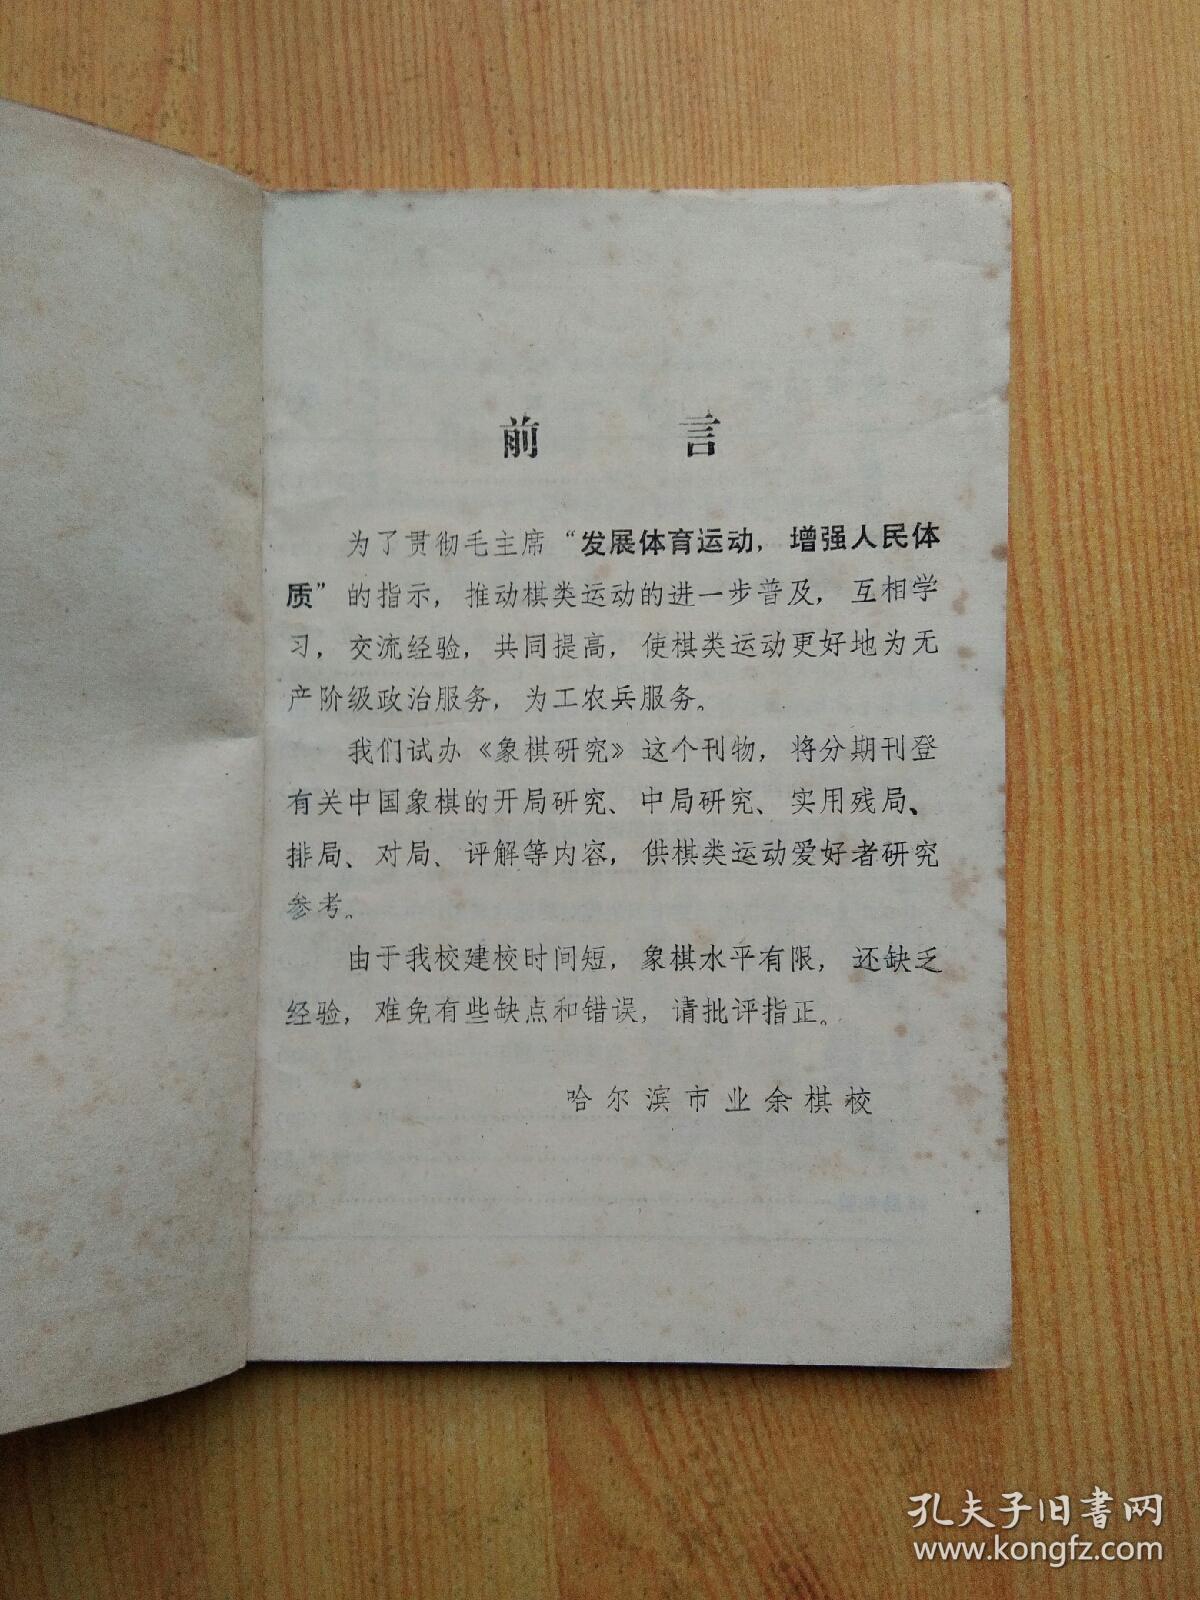 前言
为了贯彻毛主席“发展体育运动，增强人民体
质”的指示，推动棋类运动的进一步普及，互相学
习，交流经验，共同提高，使棋类运动更好地为无
产阶级政治服务，为工农兵服务。
我们试办《象棋研究》这个刊物，将分期刊登
有关中国象棋的开局研究、中局研究、实用残局、
排局、对局、评解等内容，供棋类运动爱好者研究
参考。
由于我校建校时间短，象棋水平有限，还缺乏
经验，难免有些缺点和错误，请批评指正。
哈尔滨市业余棋校
孔夫子旧书网
www.kongfz.com